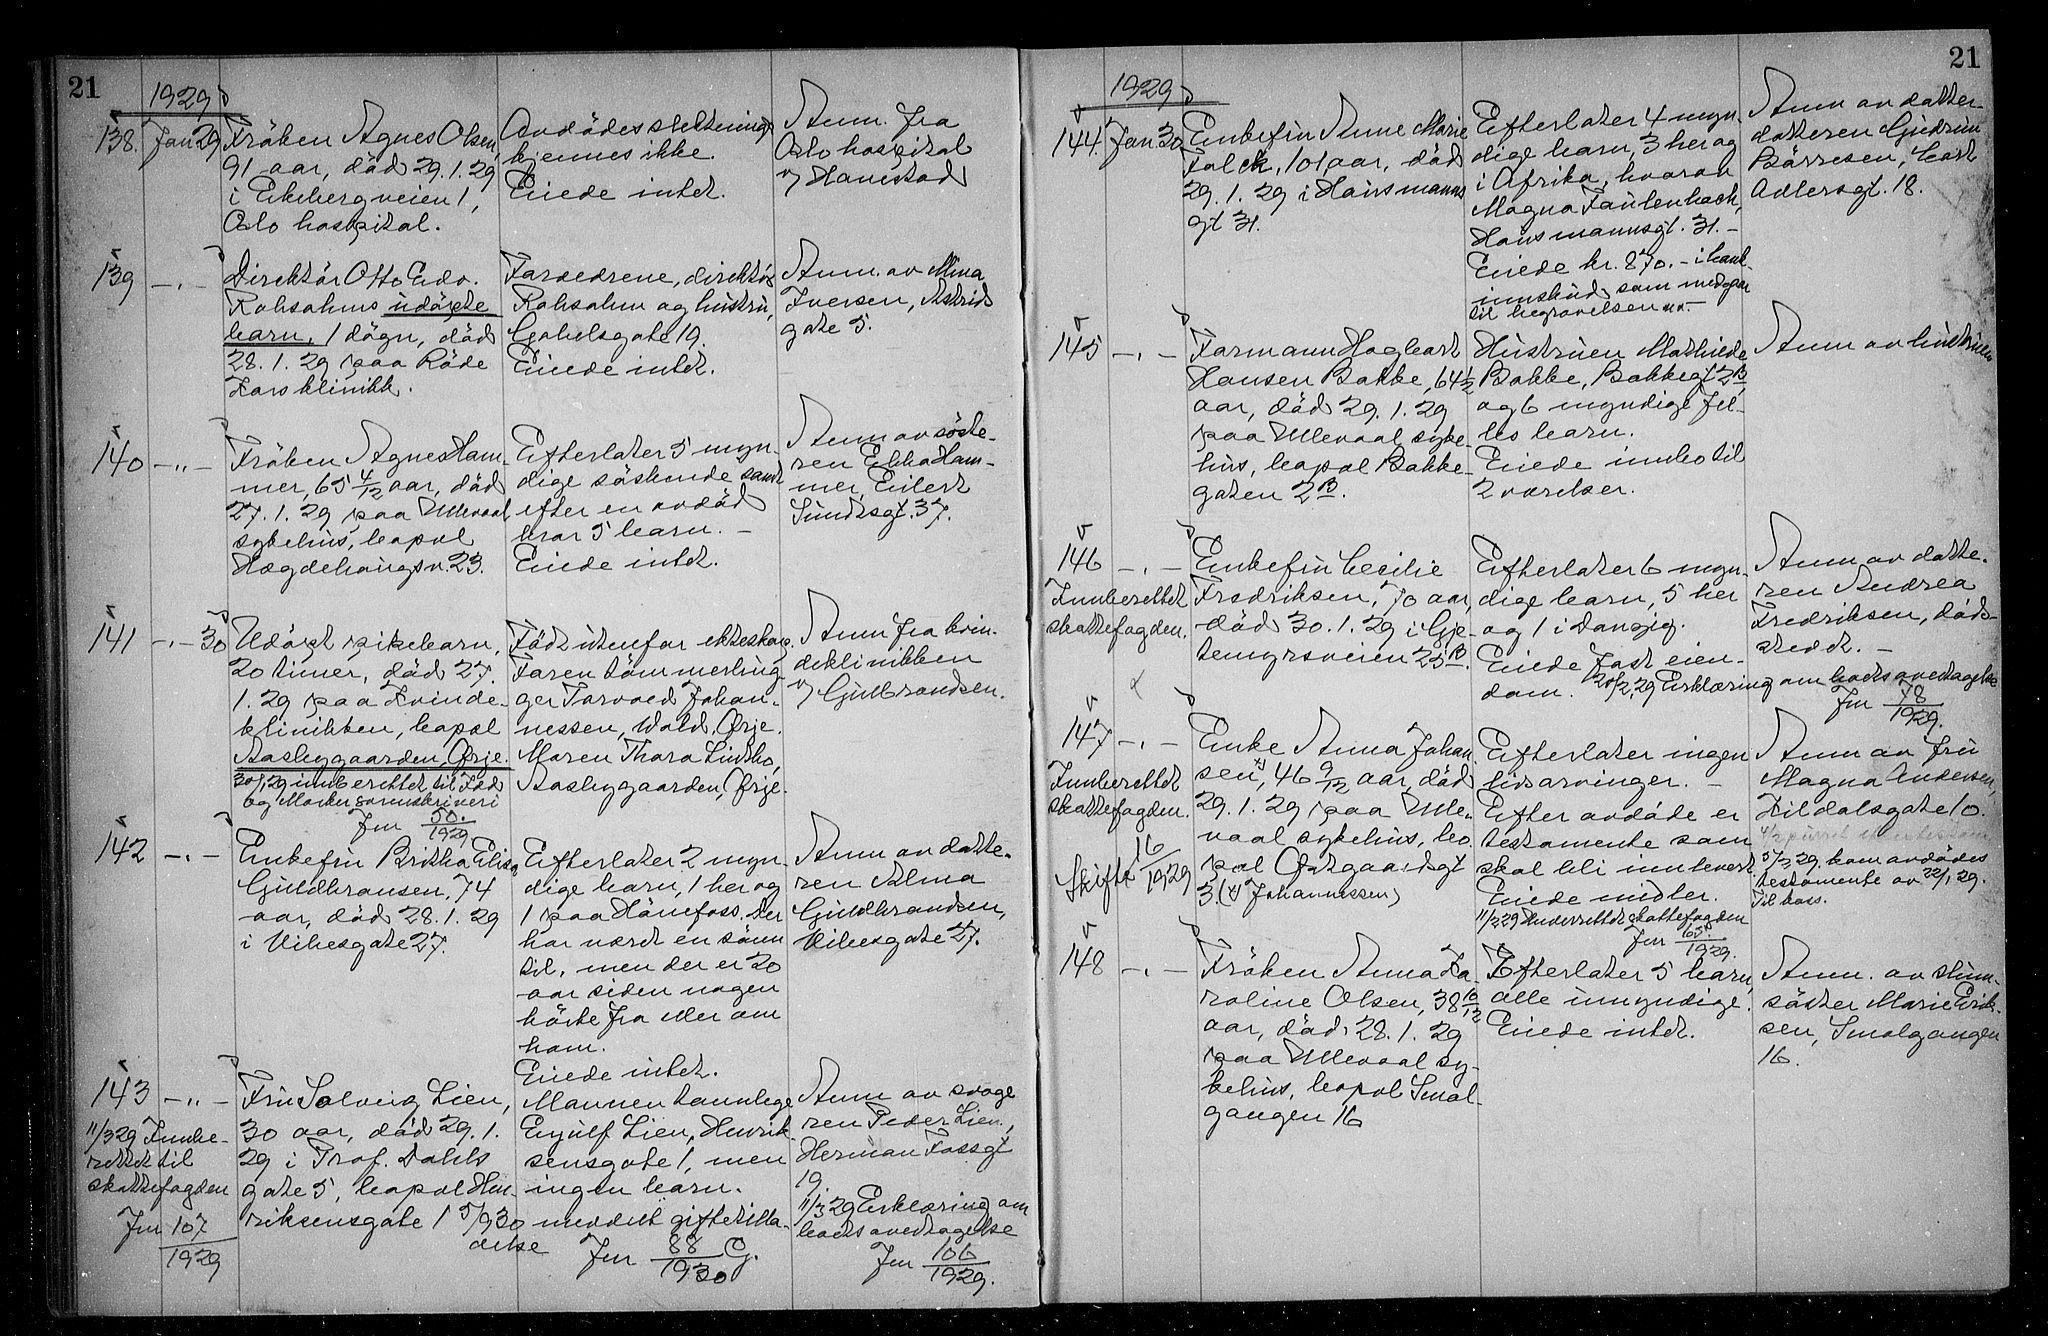 21
1929
138. Jan 29 Fröken Agnes Olsen,
91 aar, död 29.1.29
i Ekebergveien 1,
Oslo hospital.
Avdödes slektninger
kjennes ikke.
Eiede intet.
Anm. fra
Oslo hospital
v/ Hanestad
139 -"- Direktör Otto Edv.
Robsahms udöpte
barn, 1 dögn, död
28.1.29 paa Röde
Kors klinikk.
Forældrene, direktör
Robsahm og hustru,
Gabelsgate 19.
Eiede intet.
Anm. av Mina
Iversen, Astrids
gate 5.
140 -"- Fröken Agnes Ham-
mer, 65 4/12 aar, död
27.1.29 paa Ullevaal
sykehus, bopæl
Hægdehaugsv. 23.
Efterlater 5 myn-
dige söskende samt
efter en avdöd
bror 5 barn. -
Eiede intet.
Anm av söste-
ren Ebba Ham-
mer, Eilert
Sundtsgt. 37.
141 -"- 30 Udöpt pikebarn,
20 timer, död 27.
1.29 paa Kvinde-
klinikken, bopæl
Aasbygaarden, Ørje.
30/1 29 innberettet til
og Marker sorenskriveri
Jnr 50./1929
Födt utenfor ekteskap.
Faren tömmerhug-
ger Torvald Johan-
nessen, Wold, Ørje.
Moren Thora Lintho,
Aasbygaarden, Ørje.
Anm fra kvin-
deklinikken
v/ Gulbrandsen.
142 -"- Enkefru Britha Elise
Guldbransen, 74
aar, död 28.1.29
i Vibesgate 27.
Efterlater 2 myn-
dige barn, 1 her og
1 paa Hönefoss. Der
har været en sönn
til, men der er 20
aar siden nogen
hörte fra eller om
ham.
Eiede intet.
Anm av datte-
ren Alma
Guldbrandsen,
Vibesgate 27.
143 -"- Fru Solveig Lien,
30 aar, död 29.1.
29 i Prof. Dahls
gate 5, bopæl Hen-
riksensgate 1
11/3 29 Innbe-
rettet til
skattefogden
Jnr 107/1929
Mannen tannlege
Eyulf Lien, Henrik-
sensgate 1, men
ingen barn.
5/9 30 meddelt giftetilla-
delse Jnr 88/1930 G.
Anm av svoge
ren Peder Lien,
Herman Fossgt
19.
11/3 29 Erklæring om
boets overtagelse
Jnr 106/1929.
21
1929
144. Jan. 30 Enkefru Anne Marie
Falck, 101 aar, död
29.1.29 i Hausmanns
gt 31.
Efterlater 4 myn-
dige barn, 3 her og
i Afrika, hvorav
Magna Faulenbach,
Hausmannsgt. 31. -
Eiede kr. 870.- i bank-
innskud som medgaar
til begravelsen m.v.-
Anm av datter
datteren Gudrun
Börresen, Cort
Adlersgt. 18.
145 -"- Formann Hagbart
Hansen Bakke, 64 1/2
aar, död 29.1.29
paa Ullevaal syke-
hus, bopæl Bakke-
gaten 2B.
Hustruen Mathilde
Bakke, Bakkegt 2B,
og 6 myndige fel-
les barn.
Eiede innbo til
2 værelser.
Anm av hustruen
146 -"- Enkefru Cecilie
Fredriksen, 70 aar,
död 30.1.29 i Gje-
temyrsveien 25B.
Innberettet
skattefogden.
Efterlater 6 myn-
dige barn, 5 her
og 1 i Danzig.
Eiede fast eien-
dom. 20/2 29 Erklæring om boets overtagelse
Jnr 78/1929.
Anm av datte-
ren Andrea
Fredriksen, döds-
stedet. -
147 -"- Enke Anna Johan
sen x), 46 9/12 aar, död
29.1.29 paa Ulle-
vaal sykehus, bo-
pæl Østgaardsgt
3. (x) Johannessen)
Innberettet
skattefogden.
Skifte 16/1929
Efterlater ingen
livsarvinger. -
Efter avdöde er
testamente som
skal bli innlevert.
Eiede midler.
11/3 29 Underrettet skattefogden
Jnr 105./1929.
Anm av fru
Magna Andersen,
Kildalsgate 10.
5/2 29 kom avdödes
testamente av 22/1 29.
til boss.
148 -"- Fröken Anna Ka
roline Olsen, 38 10/12
aar, död 28.1.29
paa Ullevaal sy-
kehus, bopæl Smal-
gangen 16
Efterlater 5 barn,
alle umyndige.
Eiede intet.
Anm. av stiv-
söster Marie Erik-
sen, Smalgangen
16.